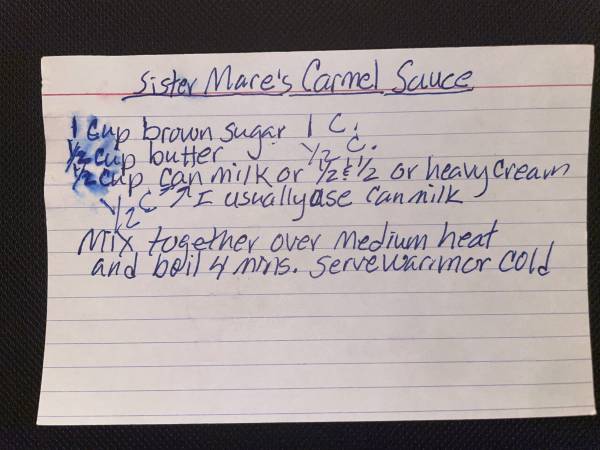 Sister Mare's Carmel Sauce
1 cup brown sugar 1 C.
1/2 cup butter 1/2 C.
1/2 cup can milk or 1/2 & 1/2 or heavy cream
1/2 C ↗ I usually use can milk
Mix together over medium heat
and boil 4 mins. serve warm or cold